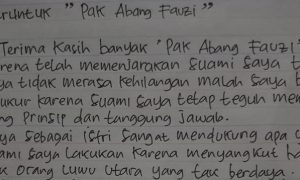 runtuk " Pak Abang Fauzi"
Terima Kasih banyak "Pak Abang Fauzi"
rena telah memenjarakan Suami Saya t
ya tidak merasa kehilangan malah Saya b
ukur karena Suami Saya tetap teguh me
ng Prinsip dan tanggung Jawab.
ya sebagai istri Sangat mendukung apa y
ami Saya Lakukan karena menyangkut ha
k Orang Luwu Utara yang tak berdaya.